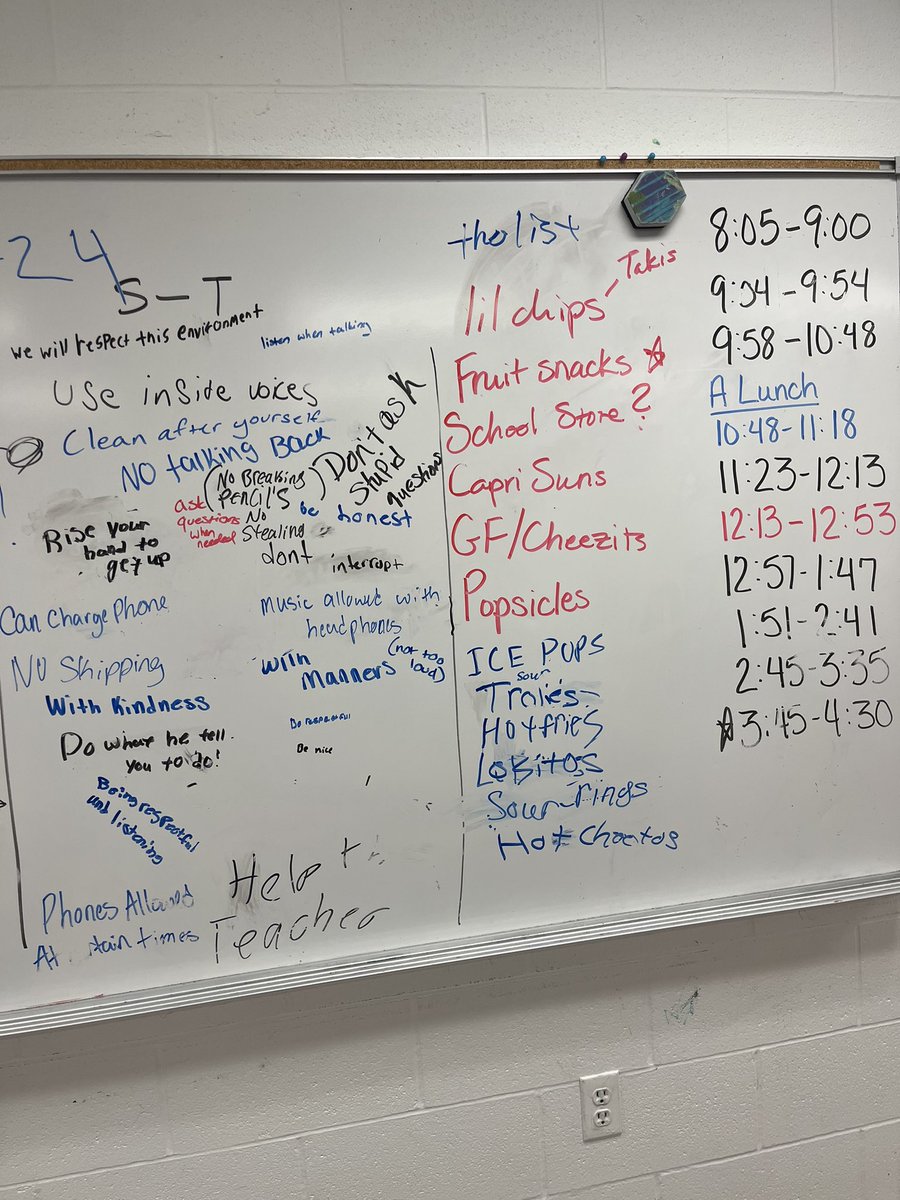 24
S-T
we will respect this environment
listen when talking
Use inside voices
Clean after yourself
NO talking Back
(No Breaking
Pencil's)
Don't ask
Stupid
questions
ask
questions
when
needed
No
Stealing
be
honest
Rise your
hand to
get up
dont
interrupt
Can Charge Phone
Music allowed with
headphones
(not too
loud)
NO Skipping
With
Manners
With Kindness
Do what he tell
you to do!
Be nice
Being respectful
and listening
Phones Allowed
At tain times
Help
Teacher
the list
lil chips
Takis
Fruit snacks
School Store?
Capri Suns
GF/Cheezits
Popsicles
ICE POPS
sour
Hotfries
Sour-rings
Hot Cheetos
8:05-9:00
9:04-9:54
9:58-10:48
A Lunch
10:48-11:18
11:23-12:13
12:13-12:53
12:57-1:47
1:51-2:41
2:45-3:35
3:45-4:30